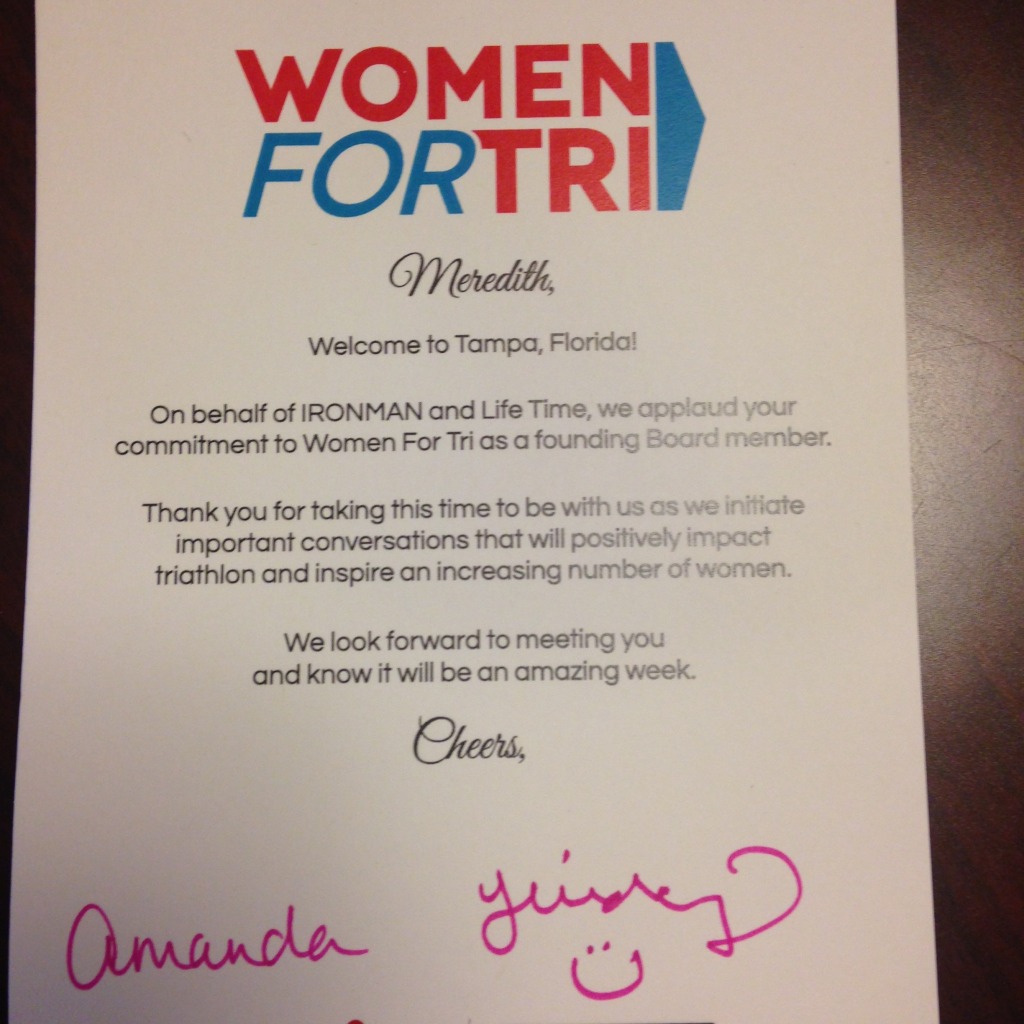 WOMEN
FORTRI
Meredith,
Welcome to Tampa, Florida!
On behalf of IRONMAN and Life Time, we applaud your
commitment to Women For Tri as a founding Board member.
Thank you for taking this time to be with us as we initiate
important conversations that will positively impact
triathlon and inspire an increasing number of women.
We look forward to meeting you
and know it will be an amazing week.
Cheers,
Amanda